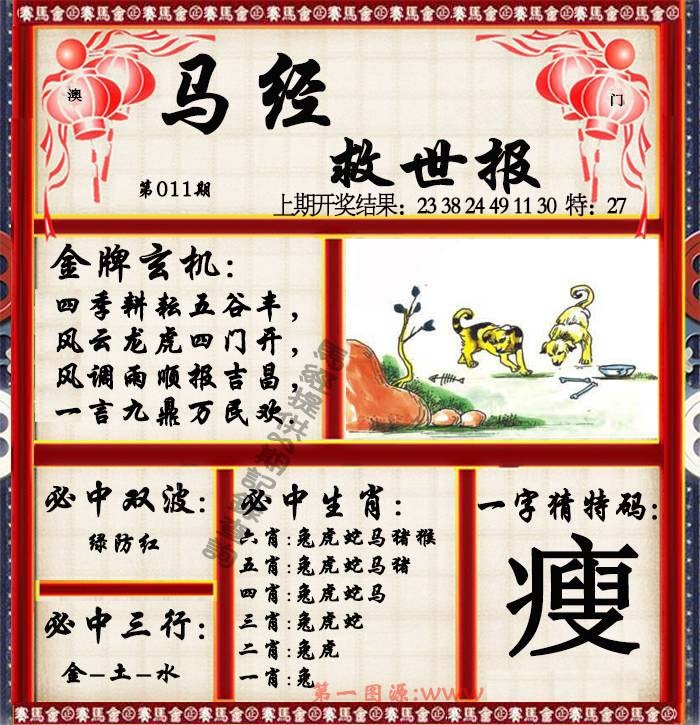 賽馬會 賽馬會 賽馬會 賽馬會 賽馬會 賽馬會 賽馬會
澳
门
马经
救世报
第011期
上期开奖结果：23 38 24 49 11 30 特：27
金牌玄机：
四季耕耘五谷丰，
风云龙虎四门开，
风调雨顺报吉昌，
一言九鼎万民欢.
必中双波：
绿防红
必中三行：
金–土–水
必中生肖：
六肖:兔虎蛇马猪猴
五肖:兔虎蛇马猪
四肖:兔虎蛇马
三肖:兔虎蛇
二肖:兔虎
一肖:兔
一字猜特码：
瘦
第一图源:www